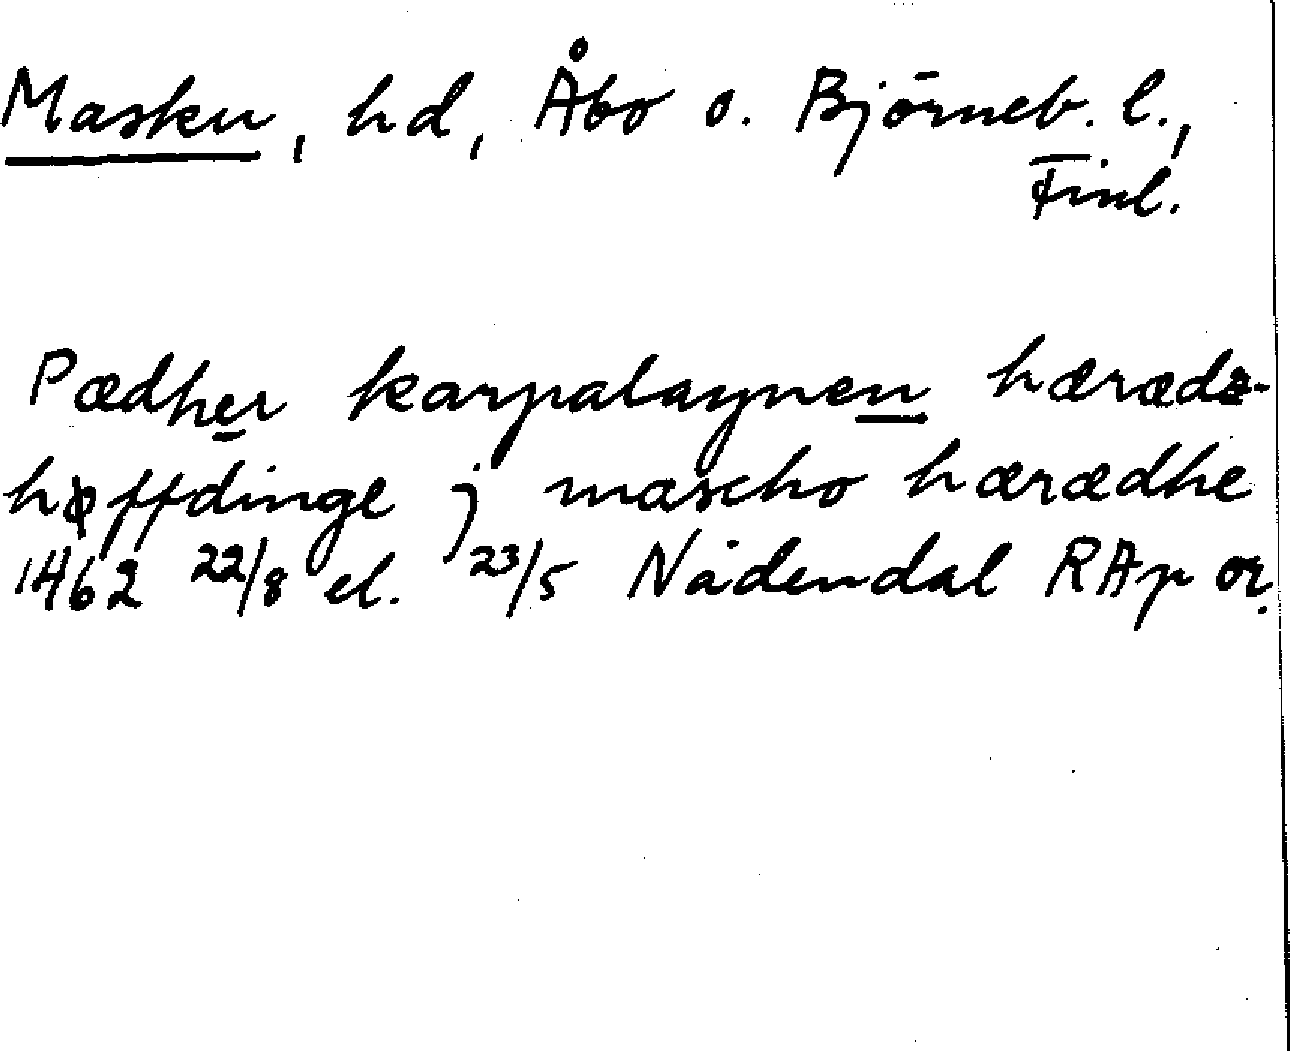 Masku, hd, Åbo o. Björneb. l.,
Finl.
Pædher karpalaynen hæradz-
høffdinge j mascho hærædhe
1462 22/8 el. 23/5 Nådendal RAp or.